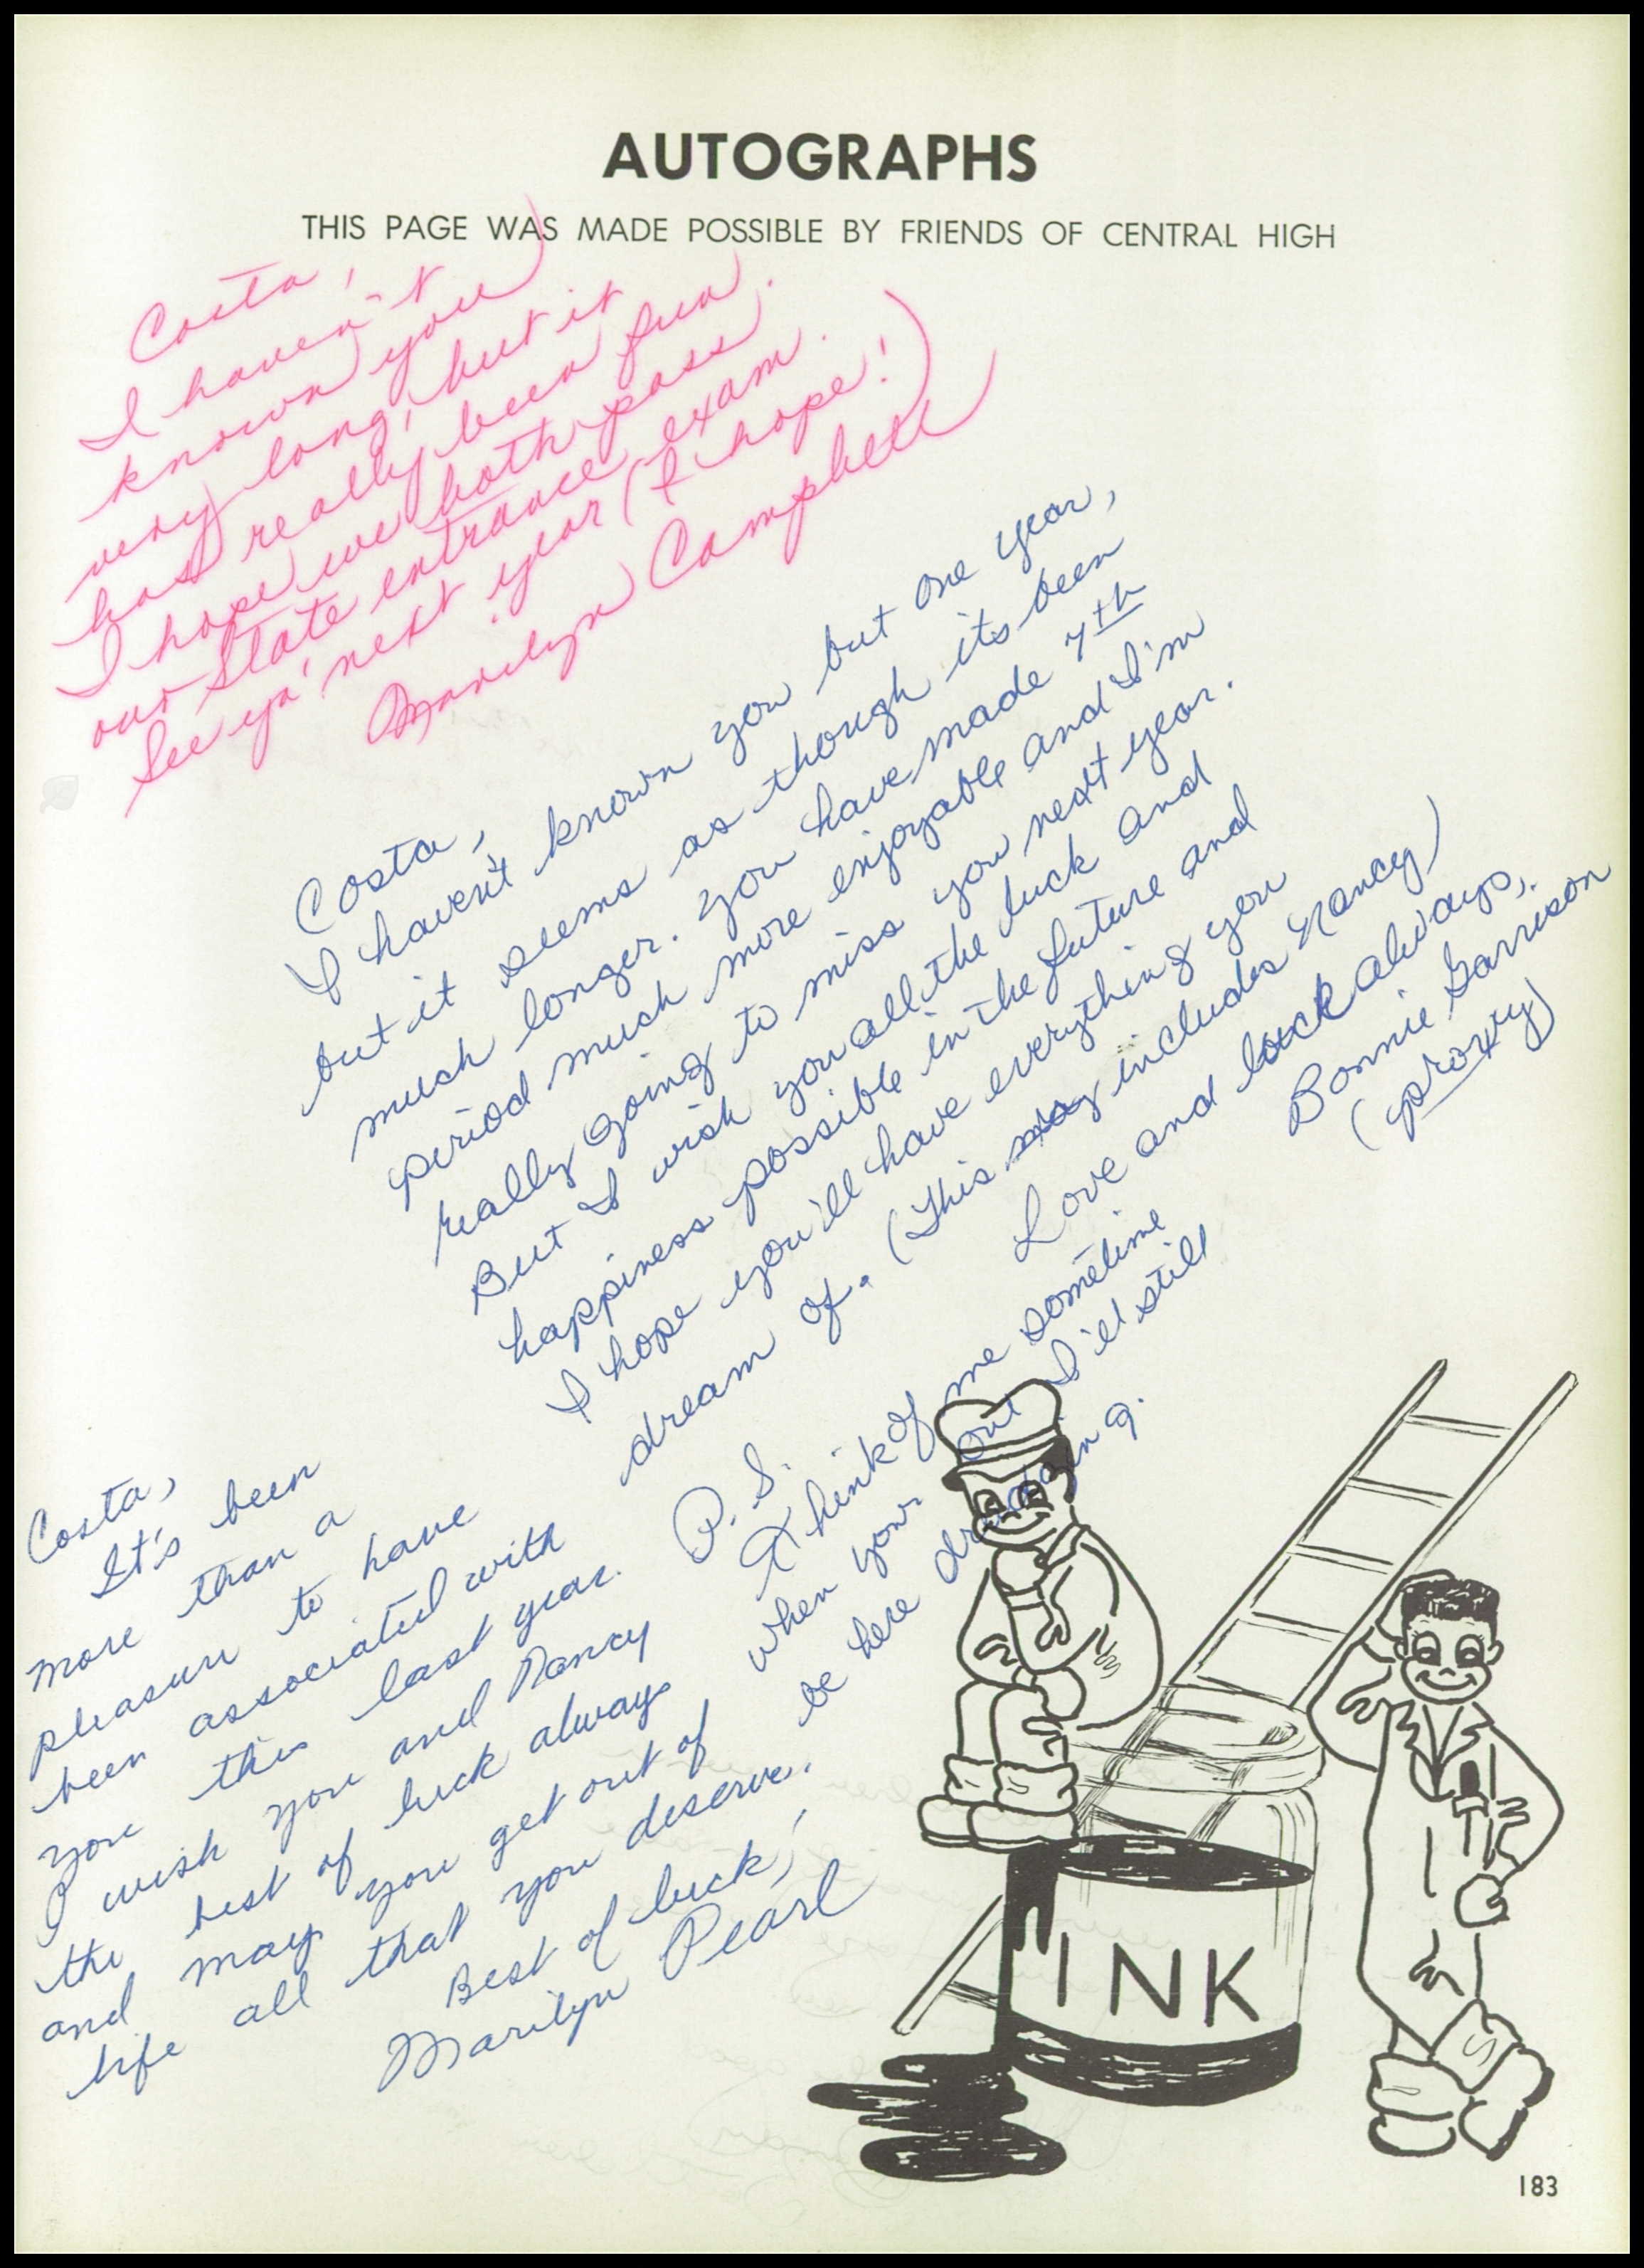 AUTOGRAPHS
THIS PAGE WAS MADE POSSIBLE BY FRIENDS OF CENTRAL HIGH
Costa,
I haven't
known you
very long, but it
has really been fun.
I hope we both pass
our State entrance exam.
See ya' next year (I hope!)
Marilyn Campbell
Costa,
I haven't known you but one year,
but it seems as though its been
much longer. You have made 7th
period much more enjoyable and I'm
really going to miss you next year.
But I wish you all the luck and
happiness possible in the future and
I hope you'll have everything you
dream of. (This includes Nancy)
Love and luck always,
Bonnie Garrison
(proxy)
P.S.
Think of me sometime
when your out I'll still
be here drudging.
Costa,
It's been
more than a
pleasure to have
been associated with
you this last year.
I wish you and Nancy
the best of luck always
and may you get out of
life all that you deserve.
Best of luck,
Marilyn Pearl
INK
183